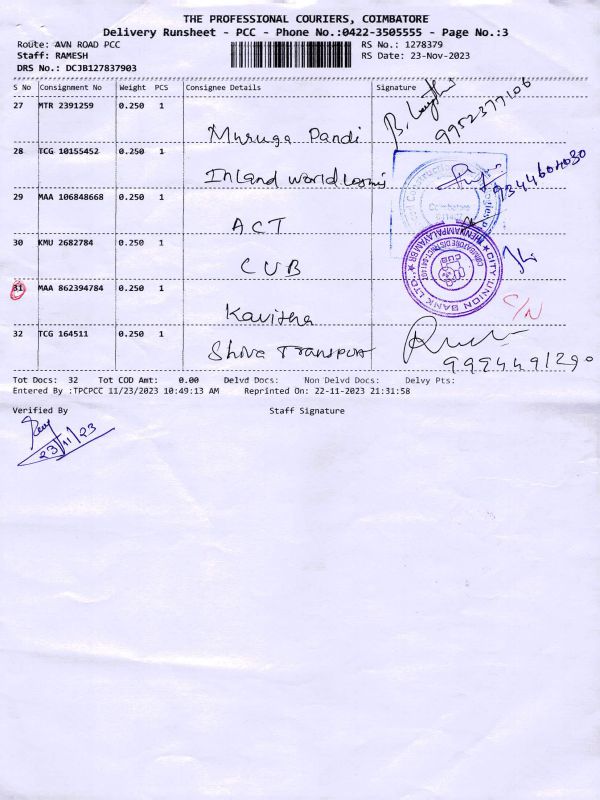 THE PROFESSIONAL COURIERS, COIMBATORE
Delivery Runsheet - PCC - Phone No.:0422-3505555 - Page No.:3
Route: AVN ROAD PCC RS No.: 1278379
Staff: RAMESH RS Date: 23-Nov-2023
DRS No.: DCJB127837903
S No Consignment No Weight PCS Consignee Details Signature
27 MTR 2391259 0.250 1
Muruga Pandi
9952377106
28 TCG 10155452 0.250 1
Inland World
9344604030
29 MAA 106848668 0.250 1
Coimbatore
ACT
30 KMU 2682784 0.250 1
CUB
CITY UNION BANK LTD.
31 MAA 862394784 0.250 1
C/N
Kavitha
32 TCG 164511 0.250 1
Shiva Transport
9994491290
Tot Docs: 32 Tot COD Amt: 0.00 Delvd Docs: Non Delvd Docs: Delvy Pts:
Entered By :TPCPCC 11/23/2023 10:49:13 AM Reprinted On: 22-11-2023 21:31:58
Verified By Staff Signature
23/11/23